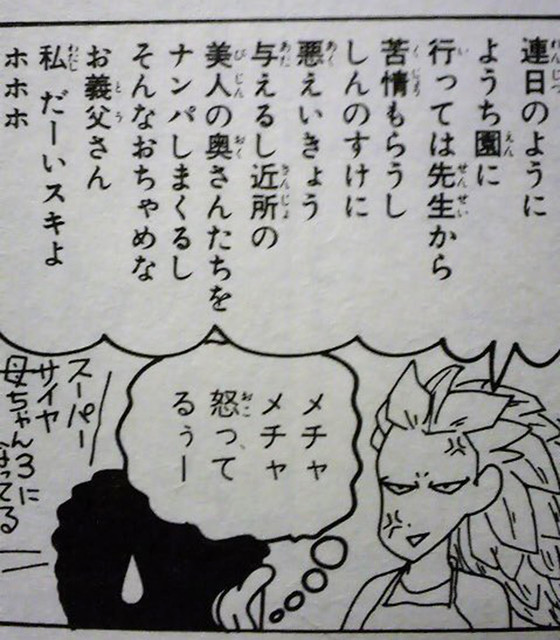 連日のように
ようち園に
行っては先生から
苦情もらうし
しんのすけに
悪えいきょう
与えるし近所の
美人の奥さんたちを
ナンパしまくるし
そんなおちゃめな
お義父さん
私 だーいスキよ
ホホホ
メチャ
メチャ
怒って
るぅー
スーパー
サイヤ
母ちゃん3に
なってる